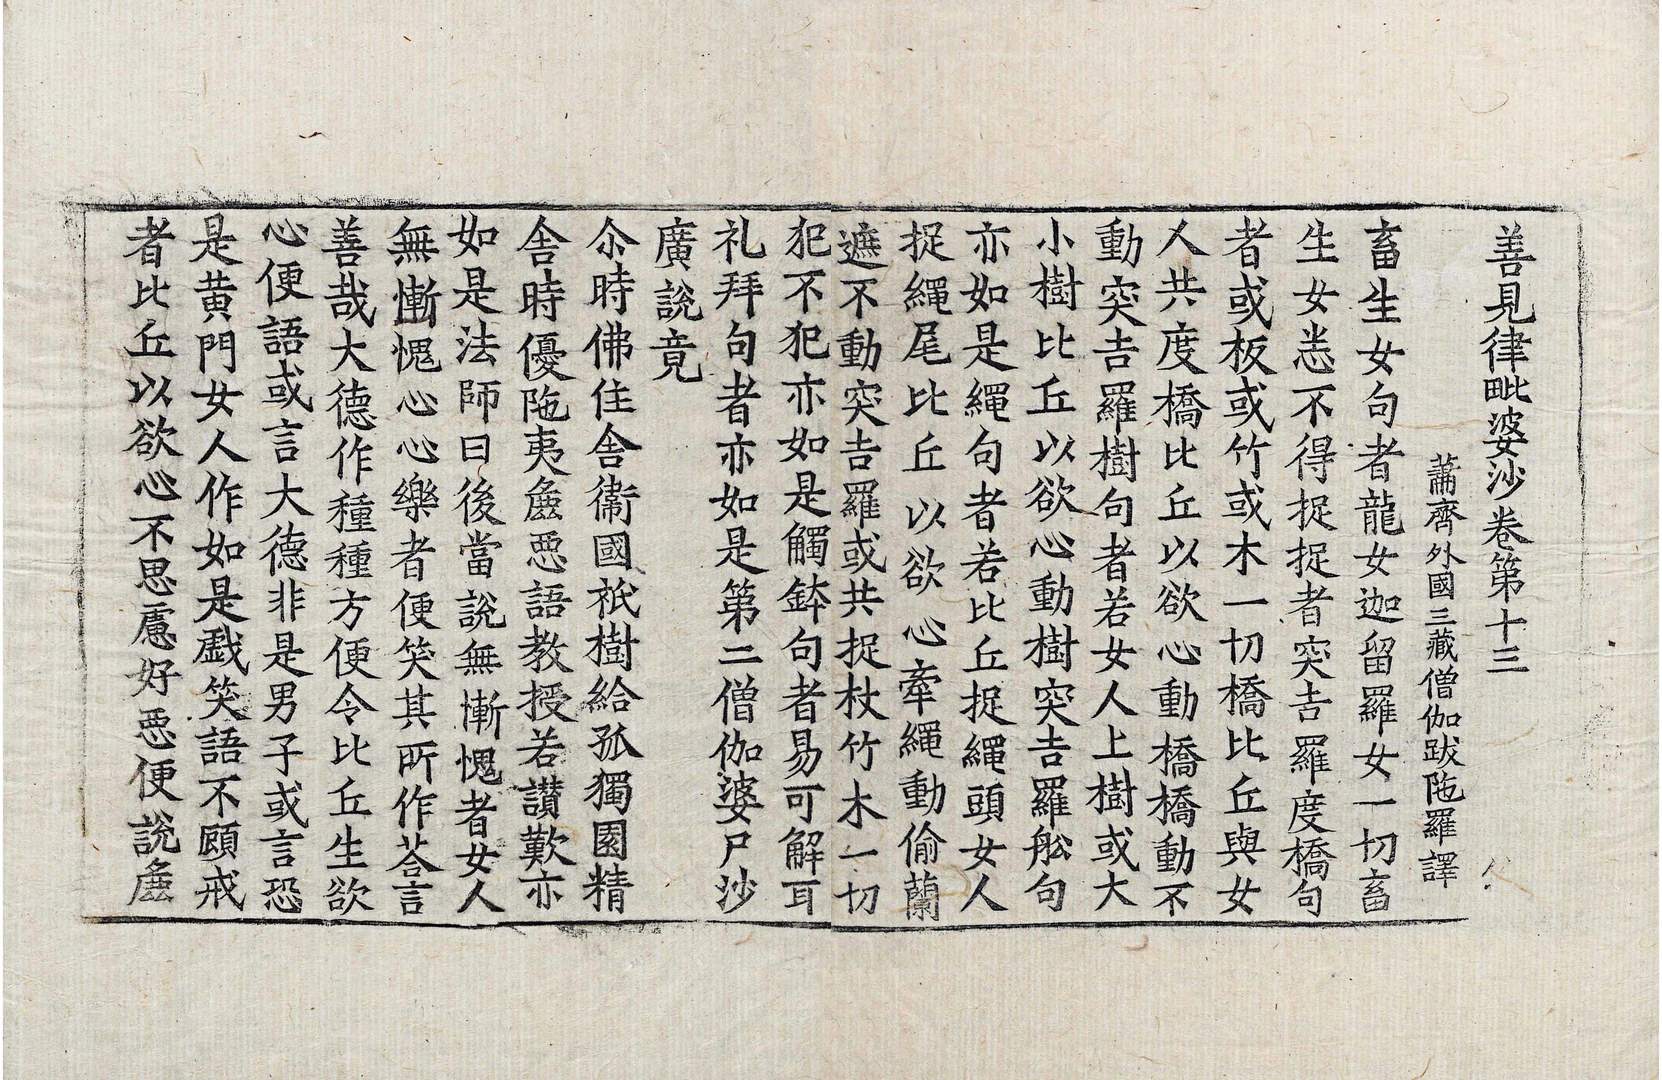 善見律毗婆沙卷第十三
蕭齊外國三藏僧伽跋陁羅譯
畜生女句者龍女迦留羅女一切畜
生女恙不得捉捉者突吉羅度橋句
者或板或竹或木一切橋比丘與女
人共度橋比丘以欲心動橋橋動不
動突吉羅樹句者若女人上樹或大
小樹比丘以欲心動樹突吉羅舩句
亦如是繩句者若比丘捉繩頭女人
捉繩尾比丘以欲心牽繩動偷蘭
遮不動突吉羅或共捉杖竹木一切
犯不犯亦如是觸鉢句者易可解耳
礼拜句者亦如是第二僧伽婆尸沙
廣說竟
尒時佛住舍衞國祇樹給孤獨園精
舍時優陁夷麁惡語教授若讃歎亦
如是法師曰後當說無慚愧者女人
無慚愧心心樂者便笑其所作荅言
善哉大德作種種方便令比丘生欲
心便語或言大德非是男子或言恐
是黃門女人作如是戲笑語不顧戒
者比丘以欲心不思慮好惡便說麁